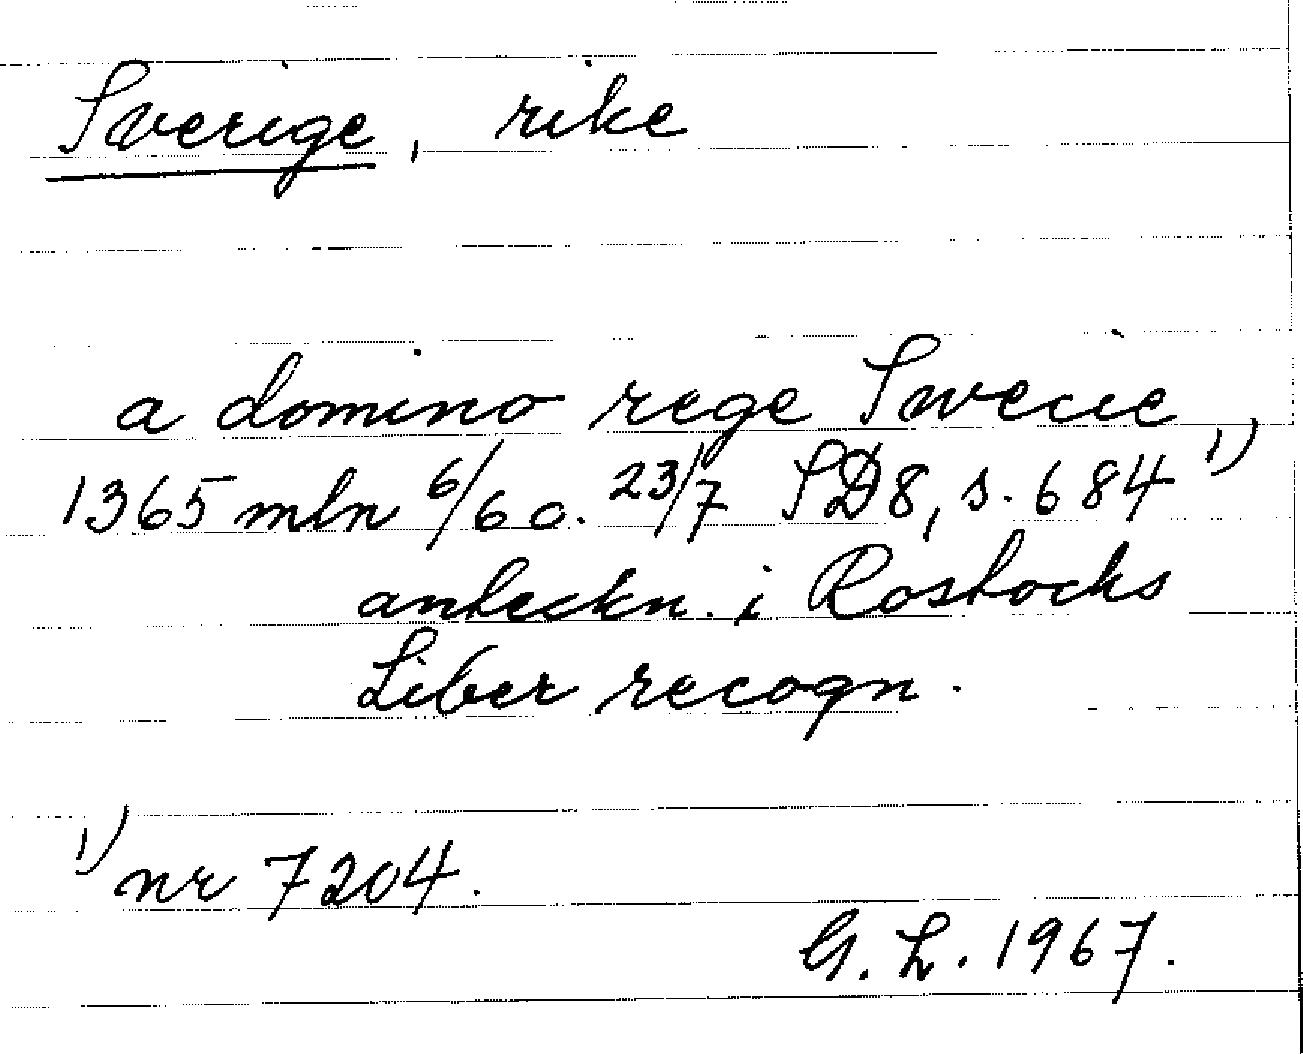 Sverige, rike
a domino rege Swecie
1365 mln 6/6 o. 23/7 SD8, s. 684 1)
anteckn. i Rostocks
Liber recogn.
1) nr 7204.
G. L. 1967.